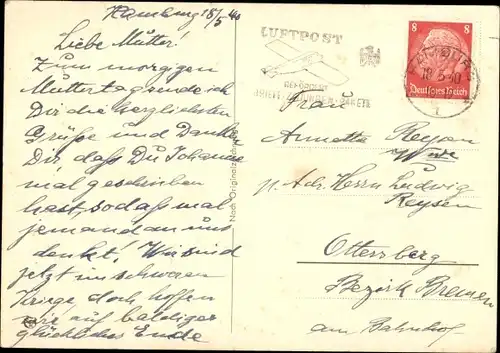 Hamburg 18/5 40
Liebe Mutter!
Zum morgigen
Muttertag sende ich
Dir die herzlichsten
Grüße und Danke
Dir, daß Du Johanne
mal geschrieben
hast, so daß mal
jemand an uns
denkt! Wir sind
jetzt im schweren
Kriege, doch hoffen
wir auf baldiges
glückliches Ende
Nach Originalzeichnung
LUFTPOST
BEFÖRDERT
BRIEFE ZEITUNGEN PAKETE
18.5.40
8 8
Deutsches Reich
Frau
Annette Reysen
Wwe
p. Adr. Herrn Ludwig
Reysen
Ottersberg
Bezirk Bremen
am Bahnhof